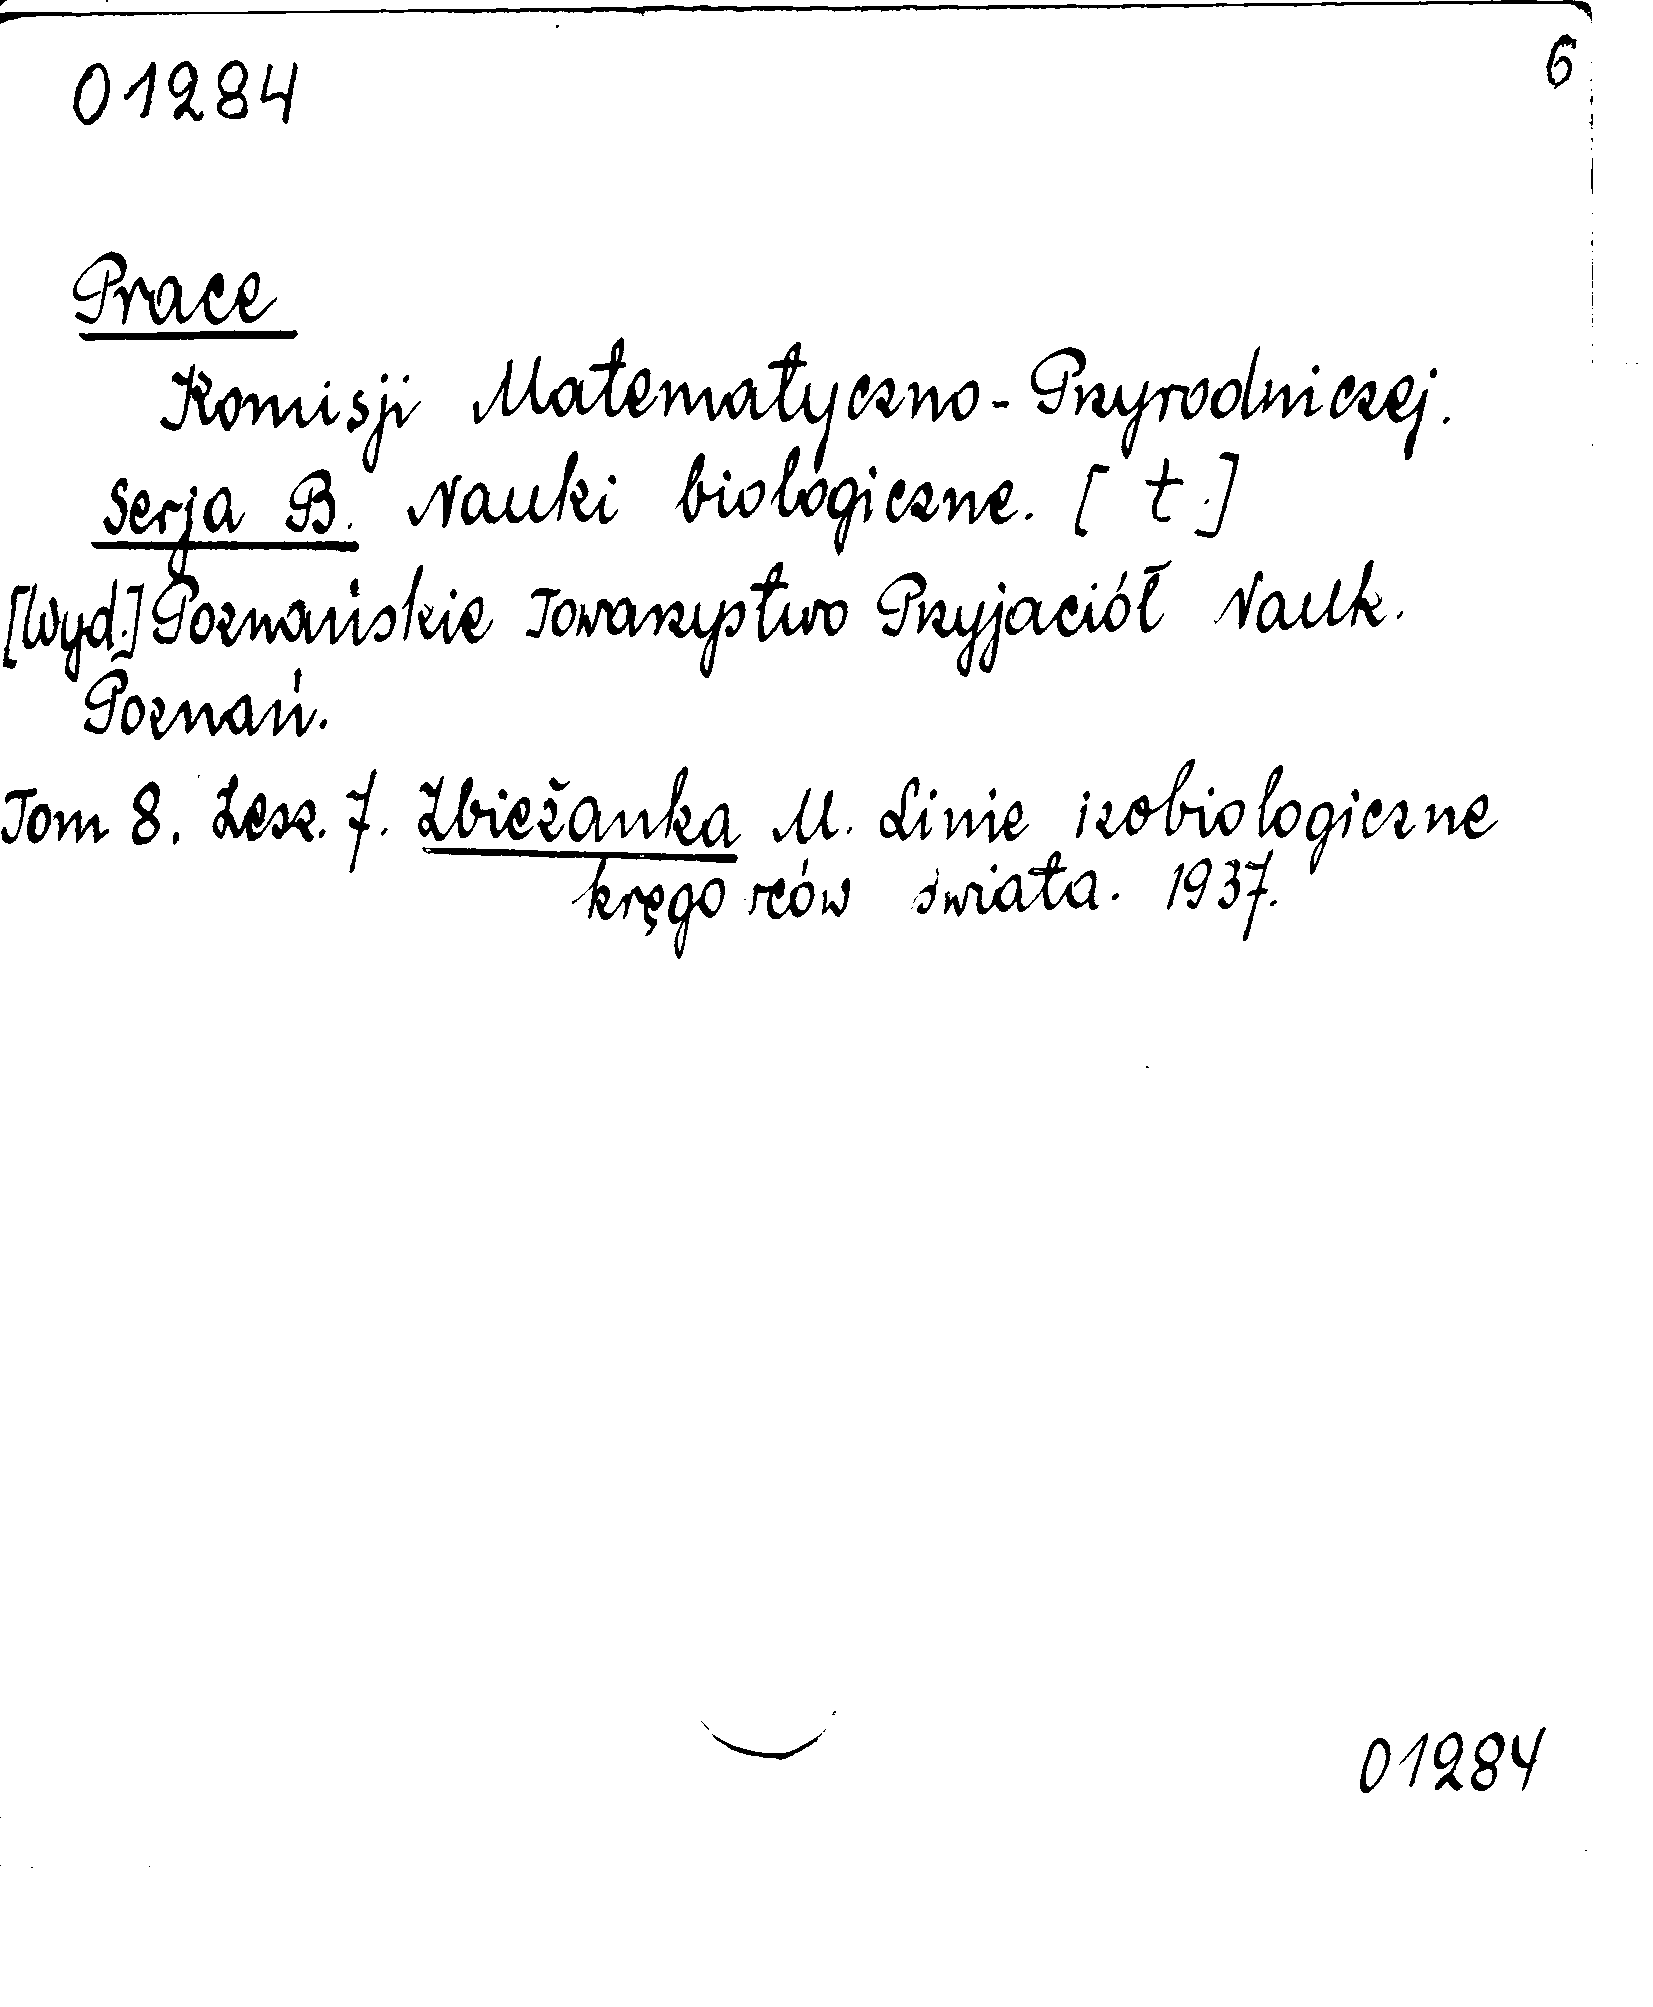 01284
6
Prace
Komisji Matematyczno-Przyrodniczej.
Serja B. Nauki biologiczne. [ t.]
[Wyd.] Poznańskie Towarzystwo Przyjaciół Nauk.
Poznań.
Tom 8. Zesz. 7. Zbieżanka M. Linie izobiologiczne
kręgowców świata. 1937.
01284